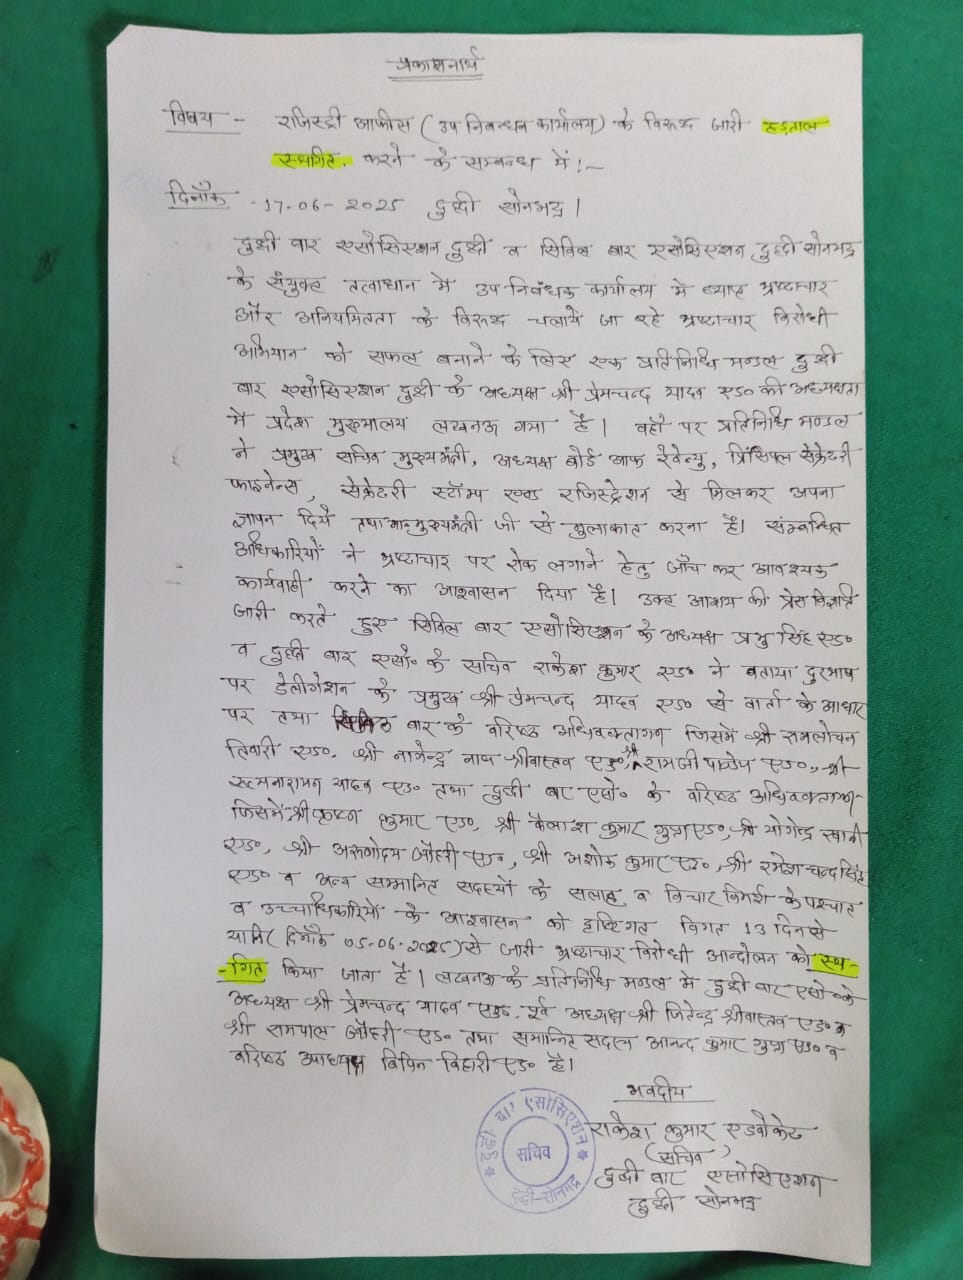 प्रकाशनार्थ
विषय :- रजिस्ट्री आफीस (उप निबन्धन कार्यालय) के विरूद्ध जारी हड़ताल
स्थगित करने के सम्बन्ध में :-
दिनाँक - 17-06-2025 दुद्धी सोनभद्र।
दुद्धी बार एसोसिएशन दुद्धी व सिविल बार एसोसिएशन दुद्धी सोनभद्र
के संयुक्त तत्वाधान में उप निबंधक कार्यालय में व्याप्त भ्रष्टाचार
और अनियमितता के विरूद्ध चलाये जा रहे भ्रष्टाचार विरोधी
अभियान को सफल बनाने के लिए एक प्रतिनिधि मण्डल दुद्धी
बार एसोसिएशन दुद्धी के अध्यक्ष श्री प्रेमचन्द यादव एड० की अध्यक्षता
में प्रदेश मुख्यालय लखनऊ गया है। वहाँ पर प्रतिनिधि मण्डल
ने प्रमुख सचिव मुख्यमंत्री, अध्यक्ष बोर्ड आफ रेवेन्यु, प्रिंसिपल सेक्रेटरी
फाइनेन्स, सेक्रेटरी स्टॉम्प एण्ड रजिस्ट्रेशन से मिलकर अपना
ज्ञापन दिये तथा मा० मुख्यमंत्री जी से मुलाकात करना है। संम्बन्धित
अधिकारियों ने भ्रष्टाचार पर रोक लगाने हेतु जाँच कर आवश्यक
कार्यवाही करने का आश्वासन दिया है। उक्त आशय की प्रेस विज्ञप्ति
जारी करते हुए सिविल बार एसोसिएशन के अध्यक्ष प्रभु सिंह एड०
व दुद्धी बार एसो० के सचिव राकेश कुमार एड० ने बताया दुरभाष
पर डेलीगेशन के प्रमुख श्री प्रेमचन्द यादव एड० से वार्ता के आधार
पर तथा सिविल बार के वरिष्ठ अधिवक्तागण जिसमें श्री रामलोचन
तिवारी एड०, श्री नागेन्द्र नाथ श्रीवास्तव एड०, श्री रामजी पाण्डेय एड०, श्री
सत्यनारायण यादव एड० तथा दुद्धी बार एसो० के वरिष्ठ अधिवक्तागण
जिसमें श्री कृष्ण कुमार एड०, श्री कैलाश कुमार गुप्ता एड०, श्री योगेन्द्र स्वामी
एड०, श्री अरूणोदय जौहरी एड०, श्री अशोक कुमार एड०, श्री रमेश चन्द सिंह
एड० व अन्य सम्मानित सदस्यों के सलाह व विचार विमर्श के पश्चात
व उच्चाधिकारियों के आश्वासन को दृष्टिगत विगत 13 दिन से
यानि (दिनाँक 05-06-2025) से जारी भ्रष्टाचार विरोधी आन्दोलन को स्थ-
-गित किया जाता है। लखनऊ के प्रतिनिधि मण्डल में दुद्धी बार एसो० के
अध्यक्ष श्री प्रेमचन्द यादव एड०, पूर्व अध्यक्ष श्री जितेन्द्र श्रीवास्तव एड० व
श्री रामपाल जौहरी एड० तथा सम्मानित सदस्य आनन्द कुमार गुप्ता एड० व
वरिष्ठ उपाध्यक्ष विपिन बिहारी एड० है।
भवदीय
राकेश कुमार एडवोकेट
(सचिव)
दुद्धी बार एसोसिएशन
दुद्धी सोनभद्र
दुद्धी बार एसोसिएशन
सचिव
दुद्धी-सोनभद्र